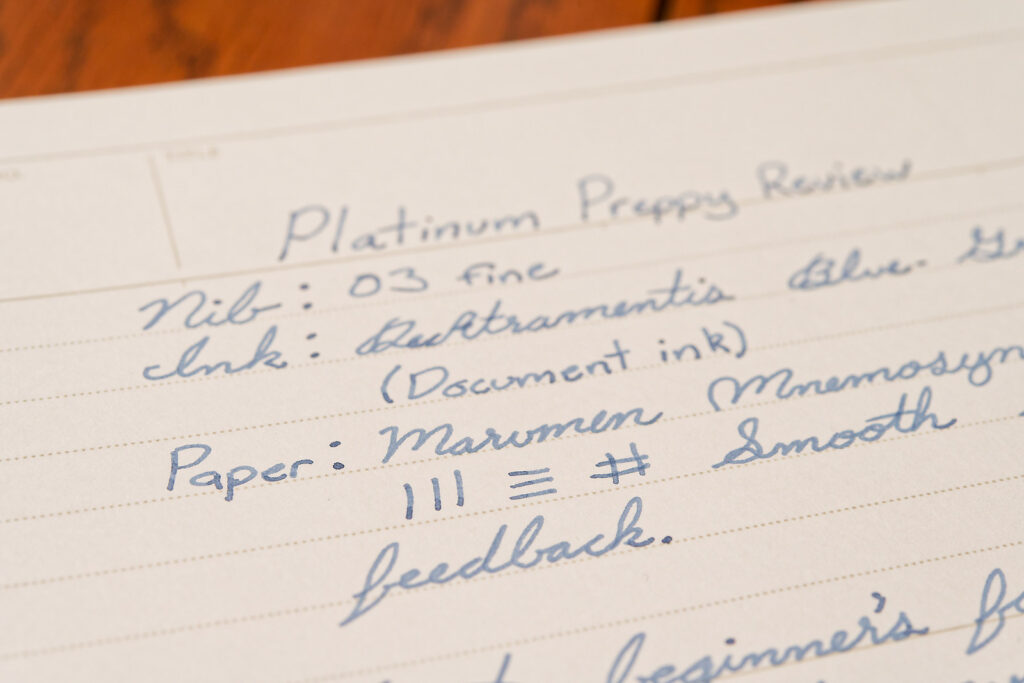 TITLE
Platinum Preppy Review
Nib: 03 fine
Ink: Blue-Gr
(Document ink)
Paper: Marumen Mnemosyn
||| ≡ # Smooth
feedback.
beginner's fo